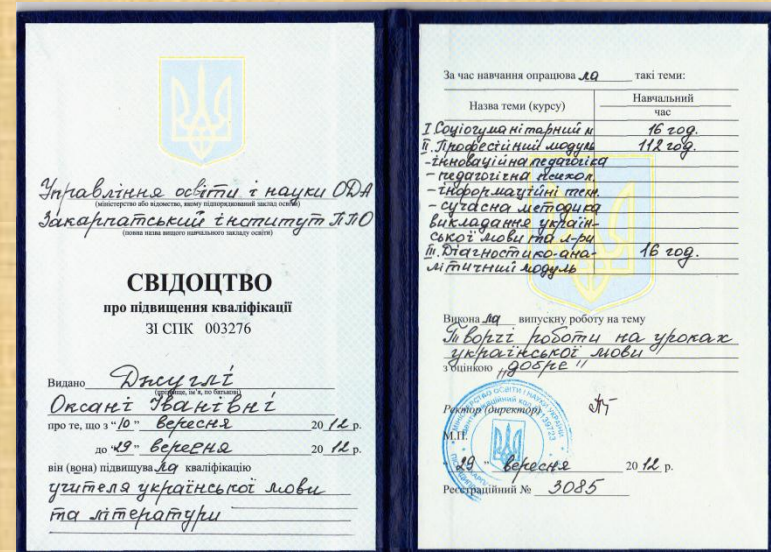 Управління освіти і науки ОДА
(міністерство або відомство, якому підпорядкований заклад освіти)
Закарпатський інститут ППО
(повна назва вищого навчального закладу освіти)
СВІДОЦТВО
про підвищення кваліфікації
ЗІ СПК 003276
Видано Джуглі
(прізвище, ім'я, по батькові)
Оксані Іванівні
про те, що з "10" вересня 2012 р.
до "29" вересня 2012 р.
він (вона) підвищувала кваліфікацію
учителя української мови
та літератури
За час навчання опрацювала такі теми:
Назва теми (курсу) Навчальний
час
I Соціогуманітарний м 16 год.
II. Професійний модуль 112 год.
-інноваційна педагогіка
- педагогічна психол.
- інформаційні техн.
- сучасна методика
викладання україн-
ської мови та л-ри
III. Діагностико-ана- 16 год.
літичний модуль
Виконала випускну роботу на тему
Творчі роботи на уроках
української мови
з оцінкою "добре"
Ректор (директор)
М.П.
"29" вересня 2012 р.
Реєстраційний № 3085